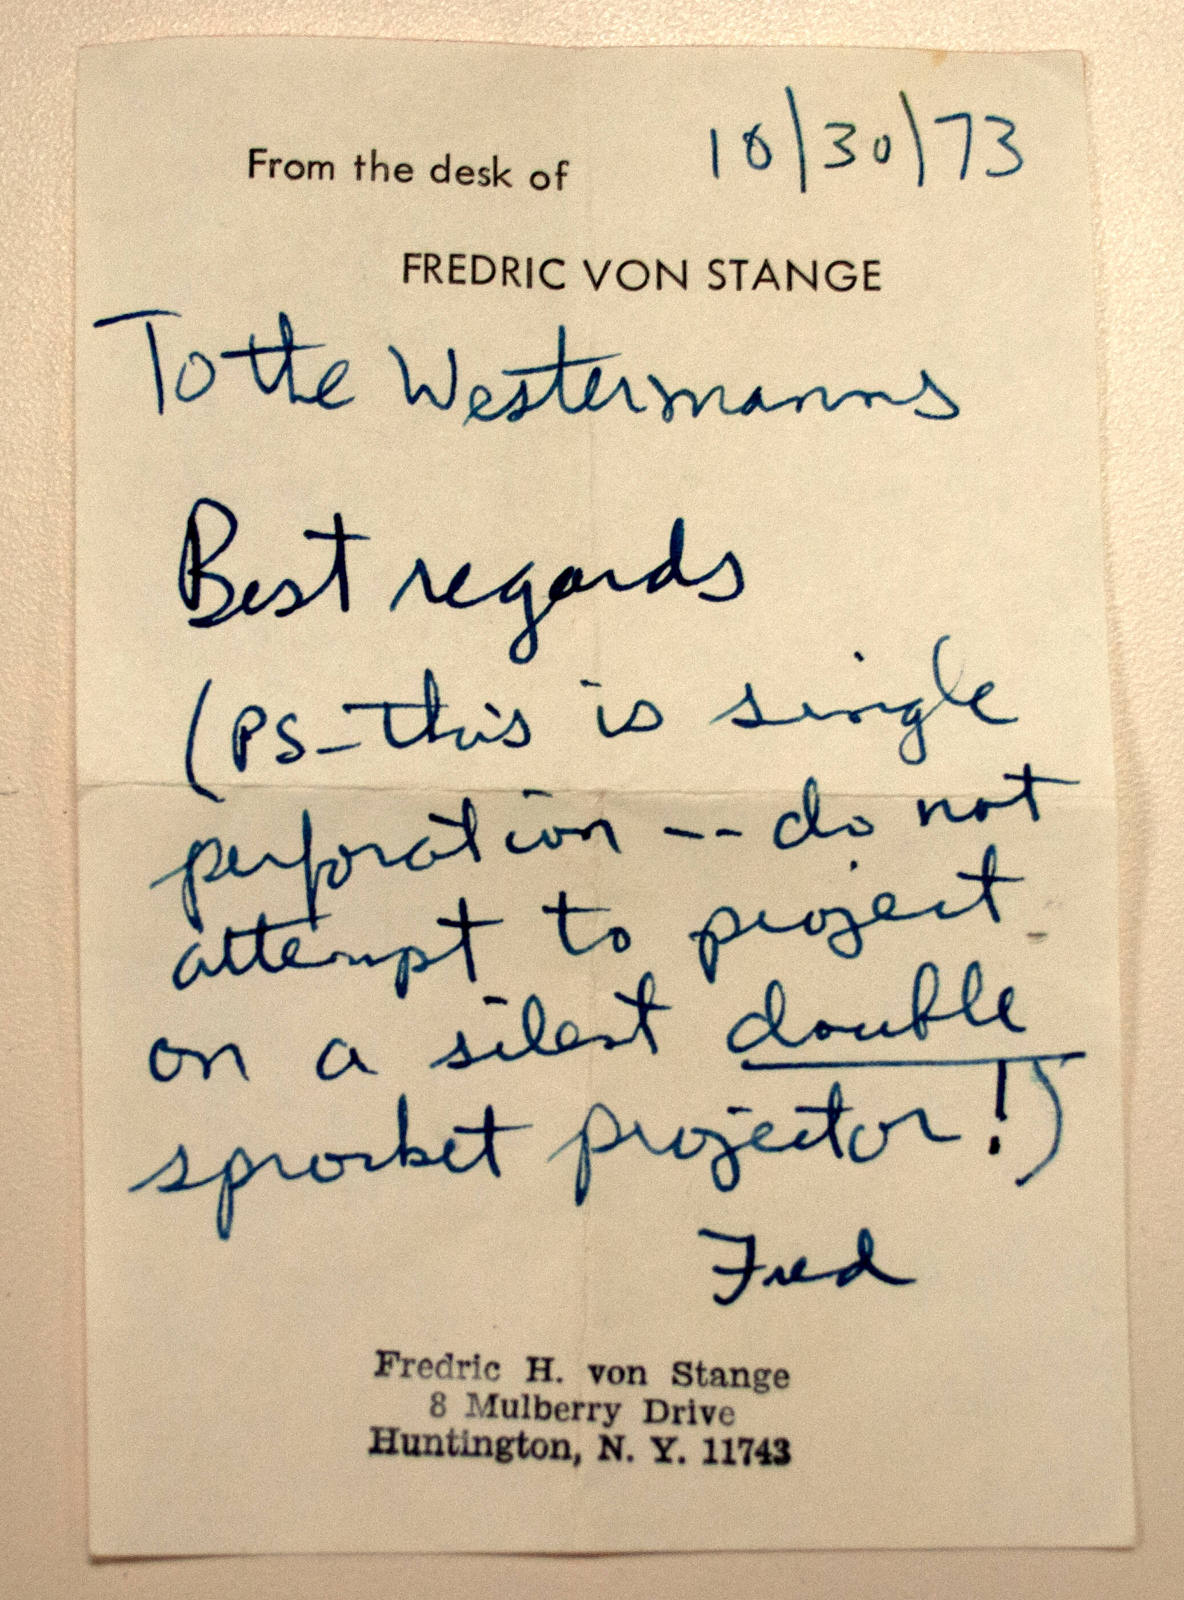 10/30/73
From the desk of
FREDRIC VON STANGE
To the Westermanns
Best regards
(PS - this is single
perforation -- do not
attempt to project
on a silent double
sprocket projector!)
Fred
Fredric H. von Stange
8 Mulberry Drive
Huntington, N. Y. 11743